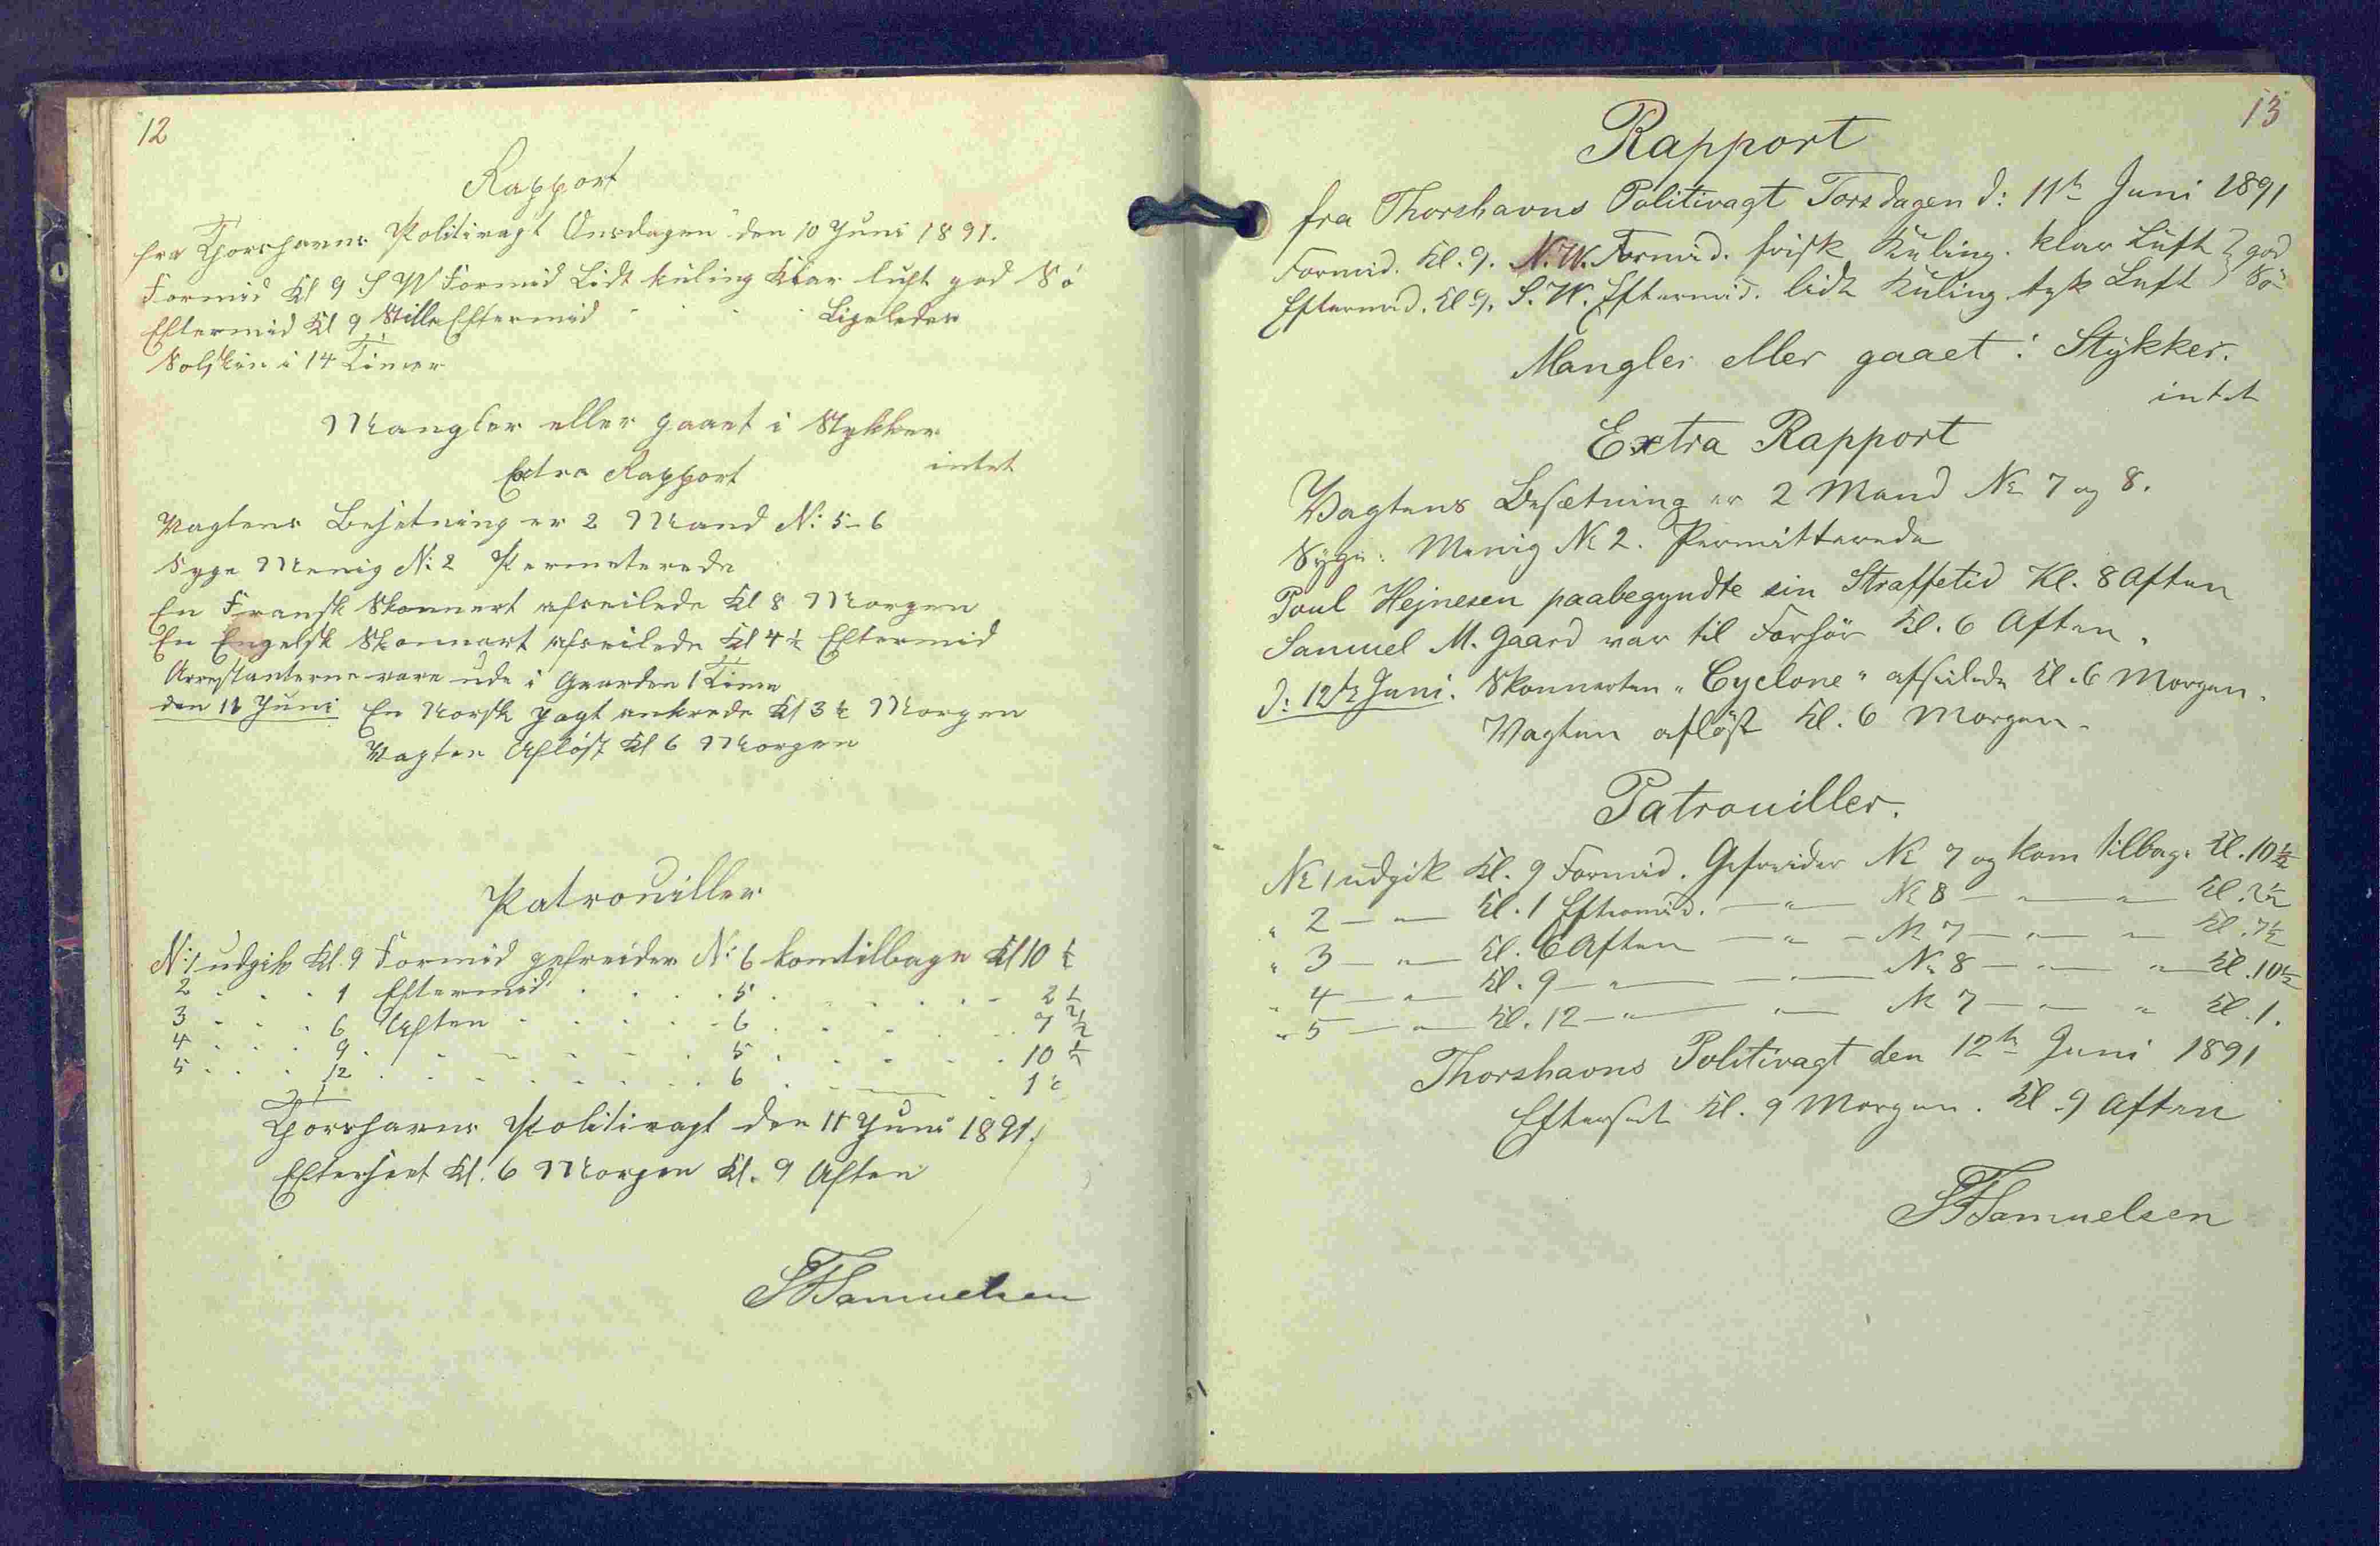 12
Rapport
fra Thorshavns Politivagt Onsdagen den 10 Juni 1891.
Formid Kl 9 S W Formid Lidt kuling Klar luft god Sö
Eftermid Kl 9 Stille Eftermid - - - - Ligeledes
Solskin i 14 Timer
Mangler eller gaaet i Stykker
intet
Extra Rapport
Vagtens Besetning er 2 Mand N: 5-6
Syge Menig N: 2 Permeterede
En Fransk Skonnert afseilede Kl 8 Morgen
En Engelsk Skonnart afseilede Kl 4½ Eftermid
Arrestanterne vare ude i Gaarden 1 Time
den 11 Juni En Norsk Jagt ankrede Kl 3½ Morgen
Vagten Aflöst Kl 6 Morgen
Patrouiller
N: 1 udgik Kl. 9 Formid gefreider N: 6 kom tilbage Kl 10 ½
2 - - - 1 Eftermid - - - - 5 - - - - - 2½
3 - - - 6 Aften - - - - - 6 - - - - - 7½
4 - - - 9 - - - - - - 5 - - - - - 10½
5 - - - 12 - - - - - - 6 - - - 1½
Thorshavns Politivagt den 11 Juni 1891.
Efterseet Kl. 6 Morgen Kl. 9 Aften
SFSamuelsen
13
Rapport
fra Thorshavns Politivagt Torsdagen d: 11te Juni 1891
Formid. Kl. 9. N.W. Formid. frisk Kuling. klar Luft } god
Eftermid. Kl. 9. S.W. Eftermid. lidt Kuling tyk Luft } Sö
Mangler eller gaaet i Stykker.
intet
Extra Rapport
Vagtens Besætning er 2 Mand No 7 og 8.
Syge: Menig No 2. Permitterede
Poul Hejnesen paabegyndte sin Straffetid Kl. 8 Aften
Samuel M. Gaard var til Forhör Kl. 6 Aften.
d: 12te Juni. Skonnerten "Cyclone" afseilede Kl. 6 Morgen.
Vagten aflöst Kl. 6 Morgen.
Patrouiller.
No 1 udgik Kl. 9 Formid. Gefreider No 7 og kom tilbage Kl. 10½
" 2 — " — Kl. 1 Eftermid. — " — No 8 — " — " — Kl. 2½
" 3 — " — Kl. 6 Aften — " — No 7 — " — " — Kl. 7½
" 4 — " — Kl. 9 — " — — " — No 8 — " — " — Kl. 10½
" 5 — " — Kl. 12 — " — " — No 7 — " — " Kl. 1.
Thorshavns Politivagt den 12te Juni 1891
Efterset Kl. 9 Morgen. Kl. 9 Aften
SFSamuelsen